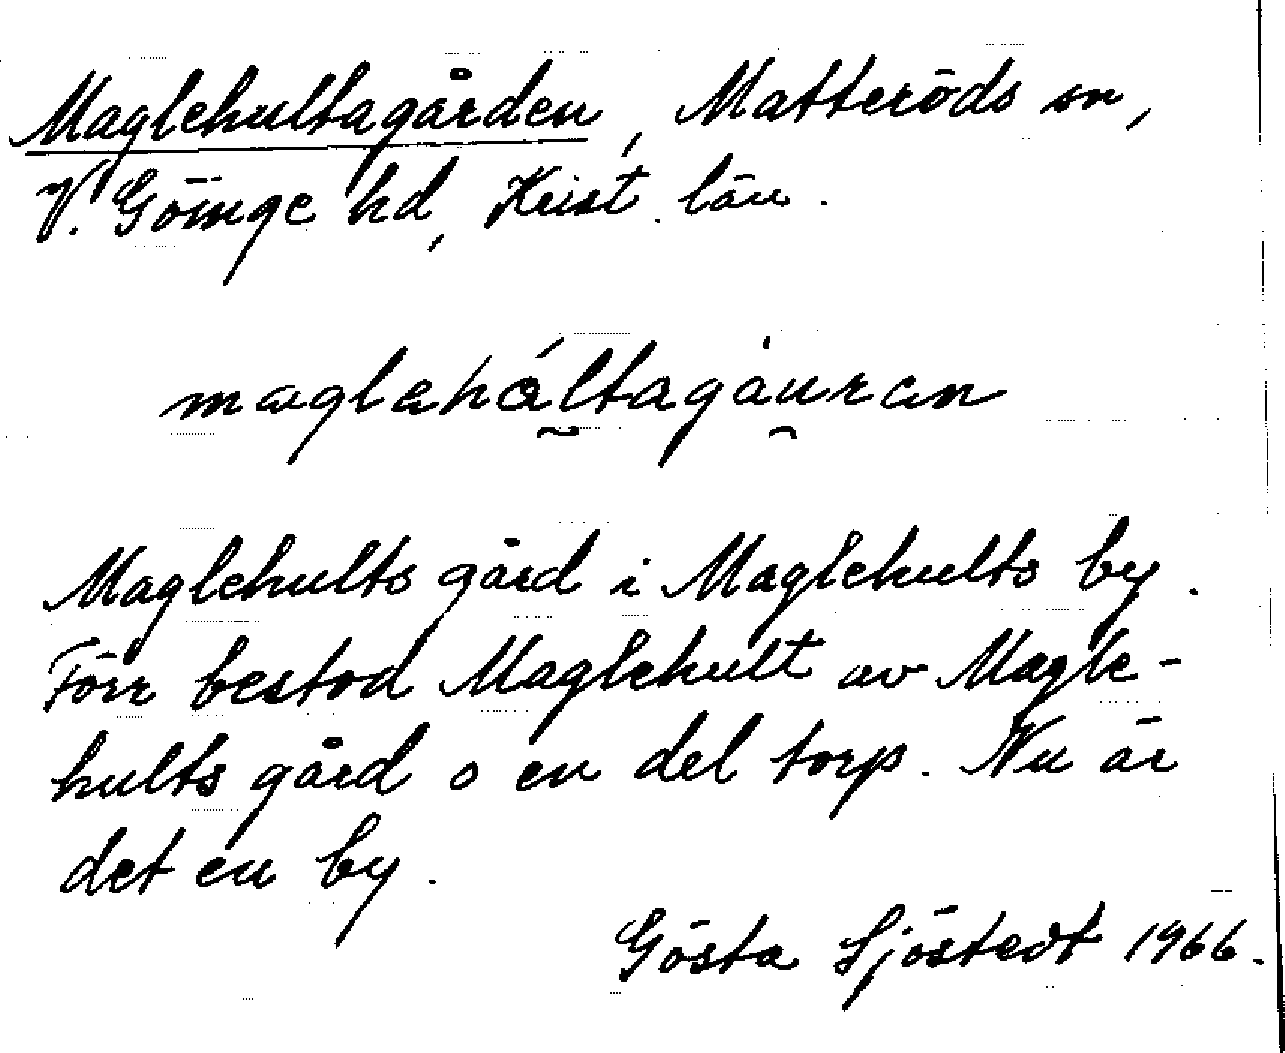 Maglehultagården, Matteröds sn,
V. Göinge hd, Krist. län.
maglehåltagǻuran
Maglehults gård i Maglehults by.
Förr bestod Maglehult av Magle-
hults gård o en del torp. Nu är
det en by.
Gösta Sjöstedt 1966.